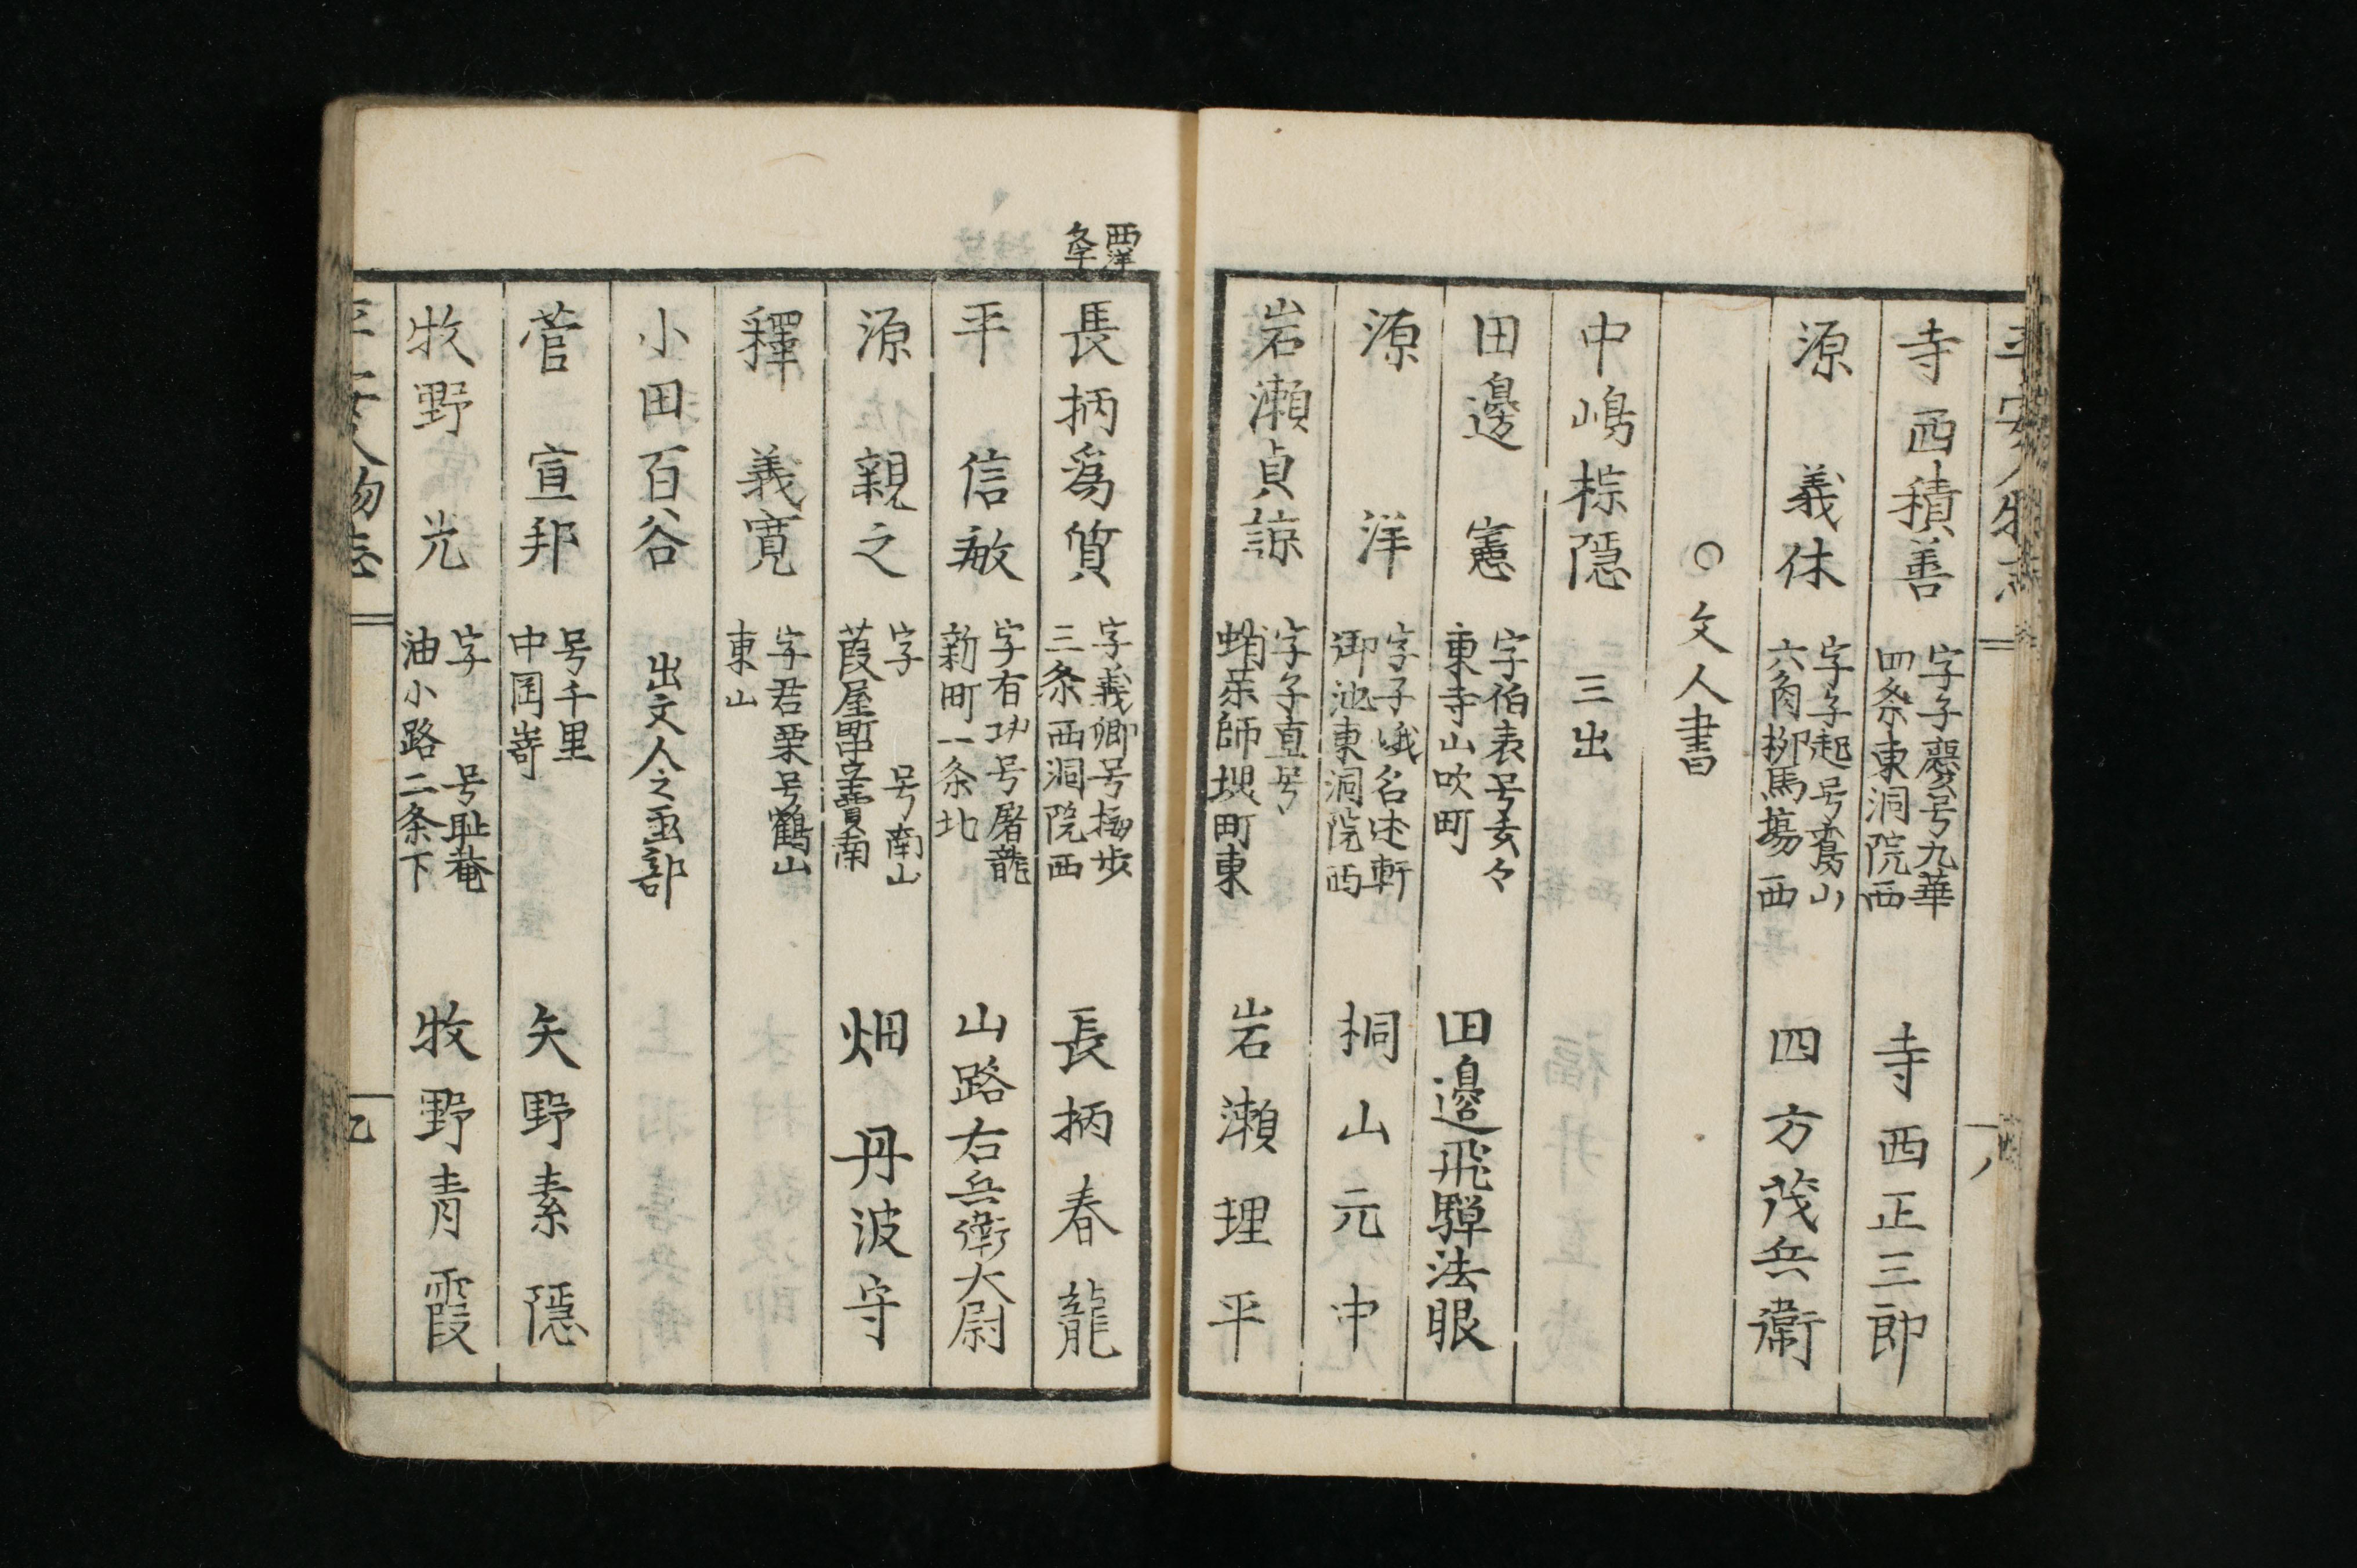 平安人物志
寺西積善 字子慶号九華 四条東洞院西 寺西正三郎
源義休 字子起号鴌山 六角栁馬場西 四方茂兵衛
○文人書
中嶋棕隠 三出
田邊憲 字伯表号玄々 東寺山吹町 田邊飛騨法眼
源洋 字子峨名迂軒 御池東洞院西 桐山元中
岩瀬貞諒 字子直号 蛸薬師堺町東 岩瀬理平
西洋 条字
長柄為質 字義卿号梅歩 三条西洞院西 長柄春龍
平信敏 字有功号屠龍 新町一条北 山路右兵衛大尉
源親之 字 号南山 葭屋町 畑丹波守
釋義寛 字君栗号鶴山 東山
小田百谷 出文人之画部
菅宣邦 号千里 中岡嵜 矢野素隠
牧野光 字 号耻菴 油小路二条下 牧野青霞
平安人物志 九